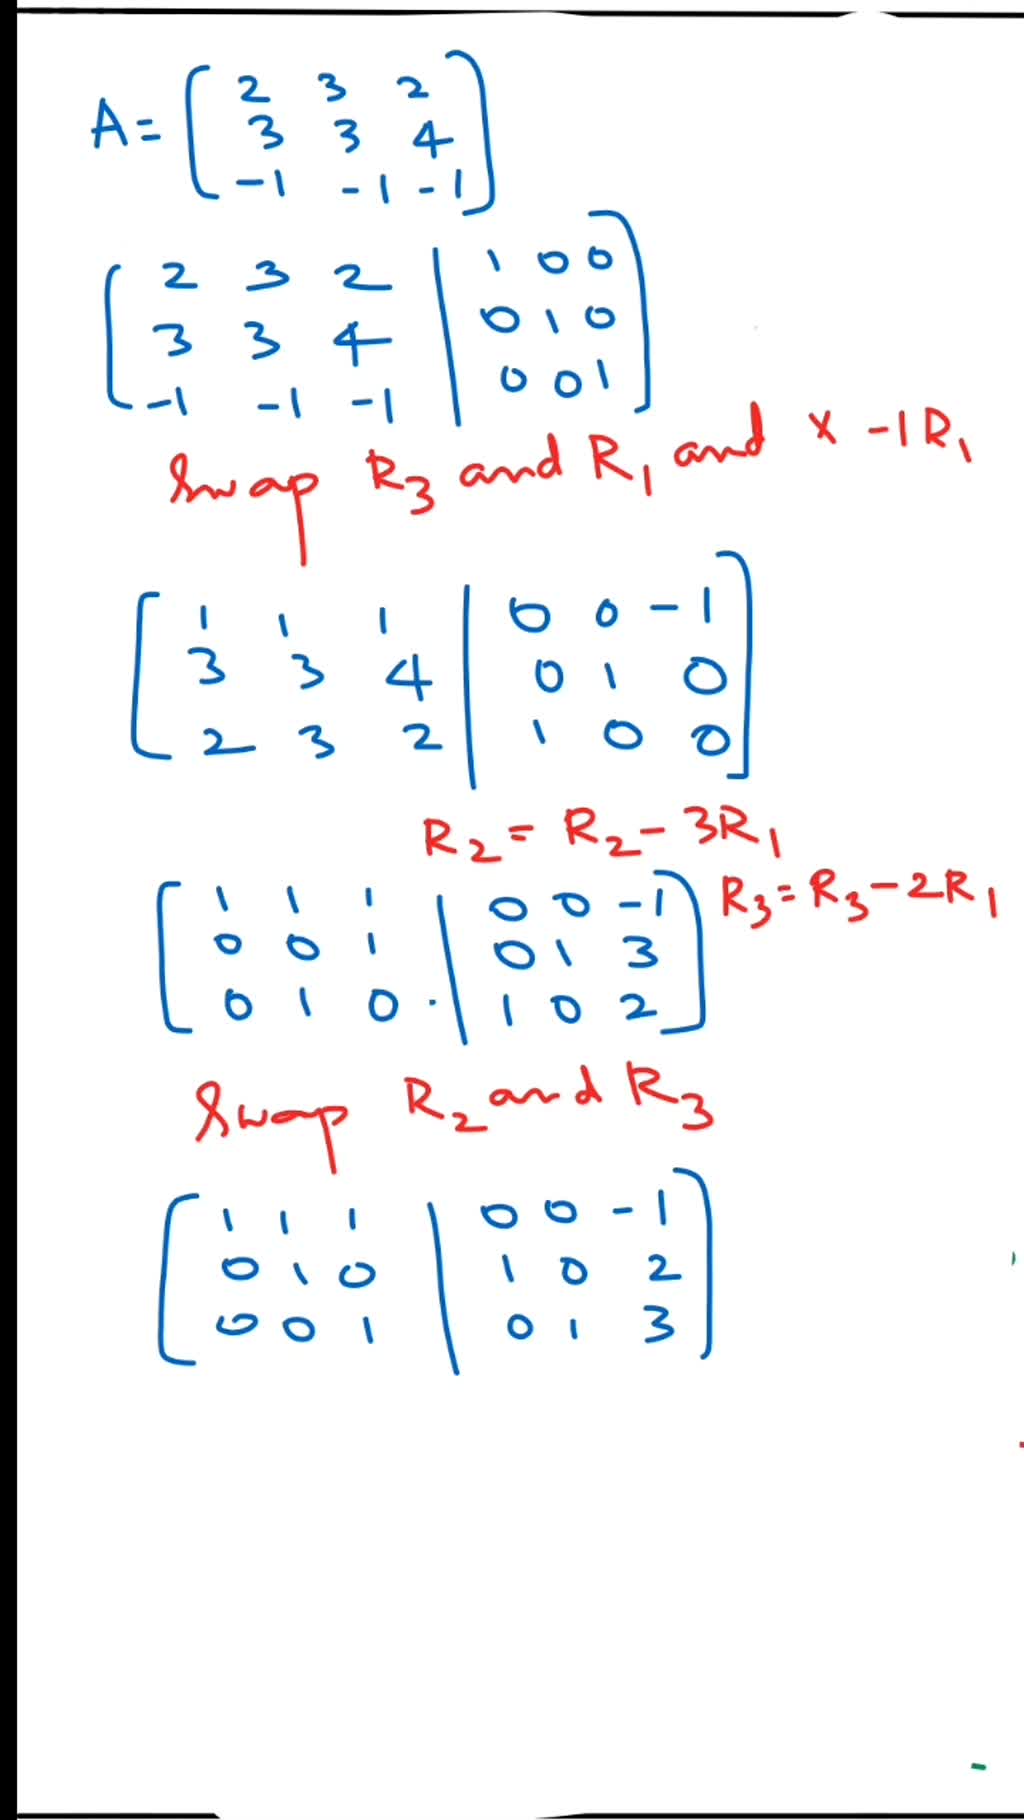 A = [ 2 3 2
3 3 4
-1 -1 -1 ]
[ 2 3 2 | 1 0 0
3 3 4 | 0 1 0
-1 -1 -1 | 0 0 1 ]
Swap R3 and R1 and x -1R1
[ 1 1 1 | 0 0 -1
3 3 4 | 0 1 0
2 3 2 | 1 0 0 ]
R2 = R2 - 3R1
R3 = R3 - 2R1
[ 1 1 1 | 0 0 -1
0 0 1 | 0 1 3
0 1 0 . | 1 0 2 ]
Swap R2 and R3
[ 1 1 1 | 0 0 -1
0 1 0 | 1 0 2
0 0 1 | 0 1 3 ]